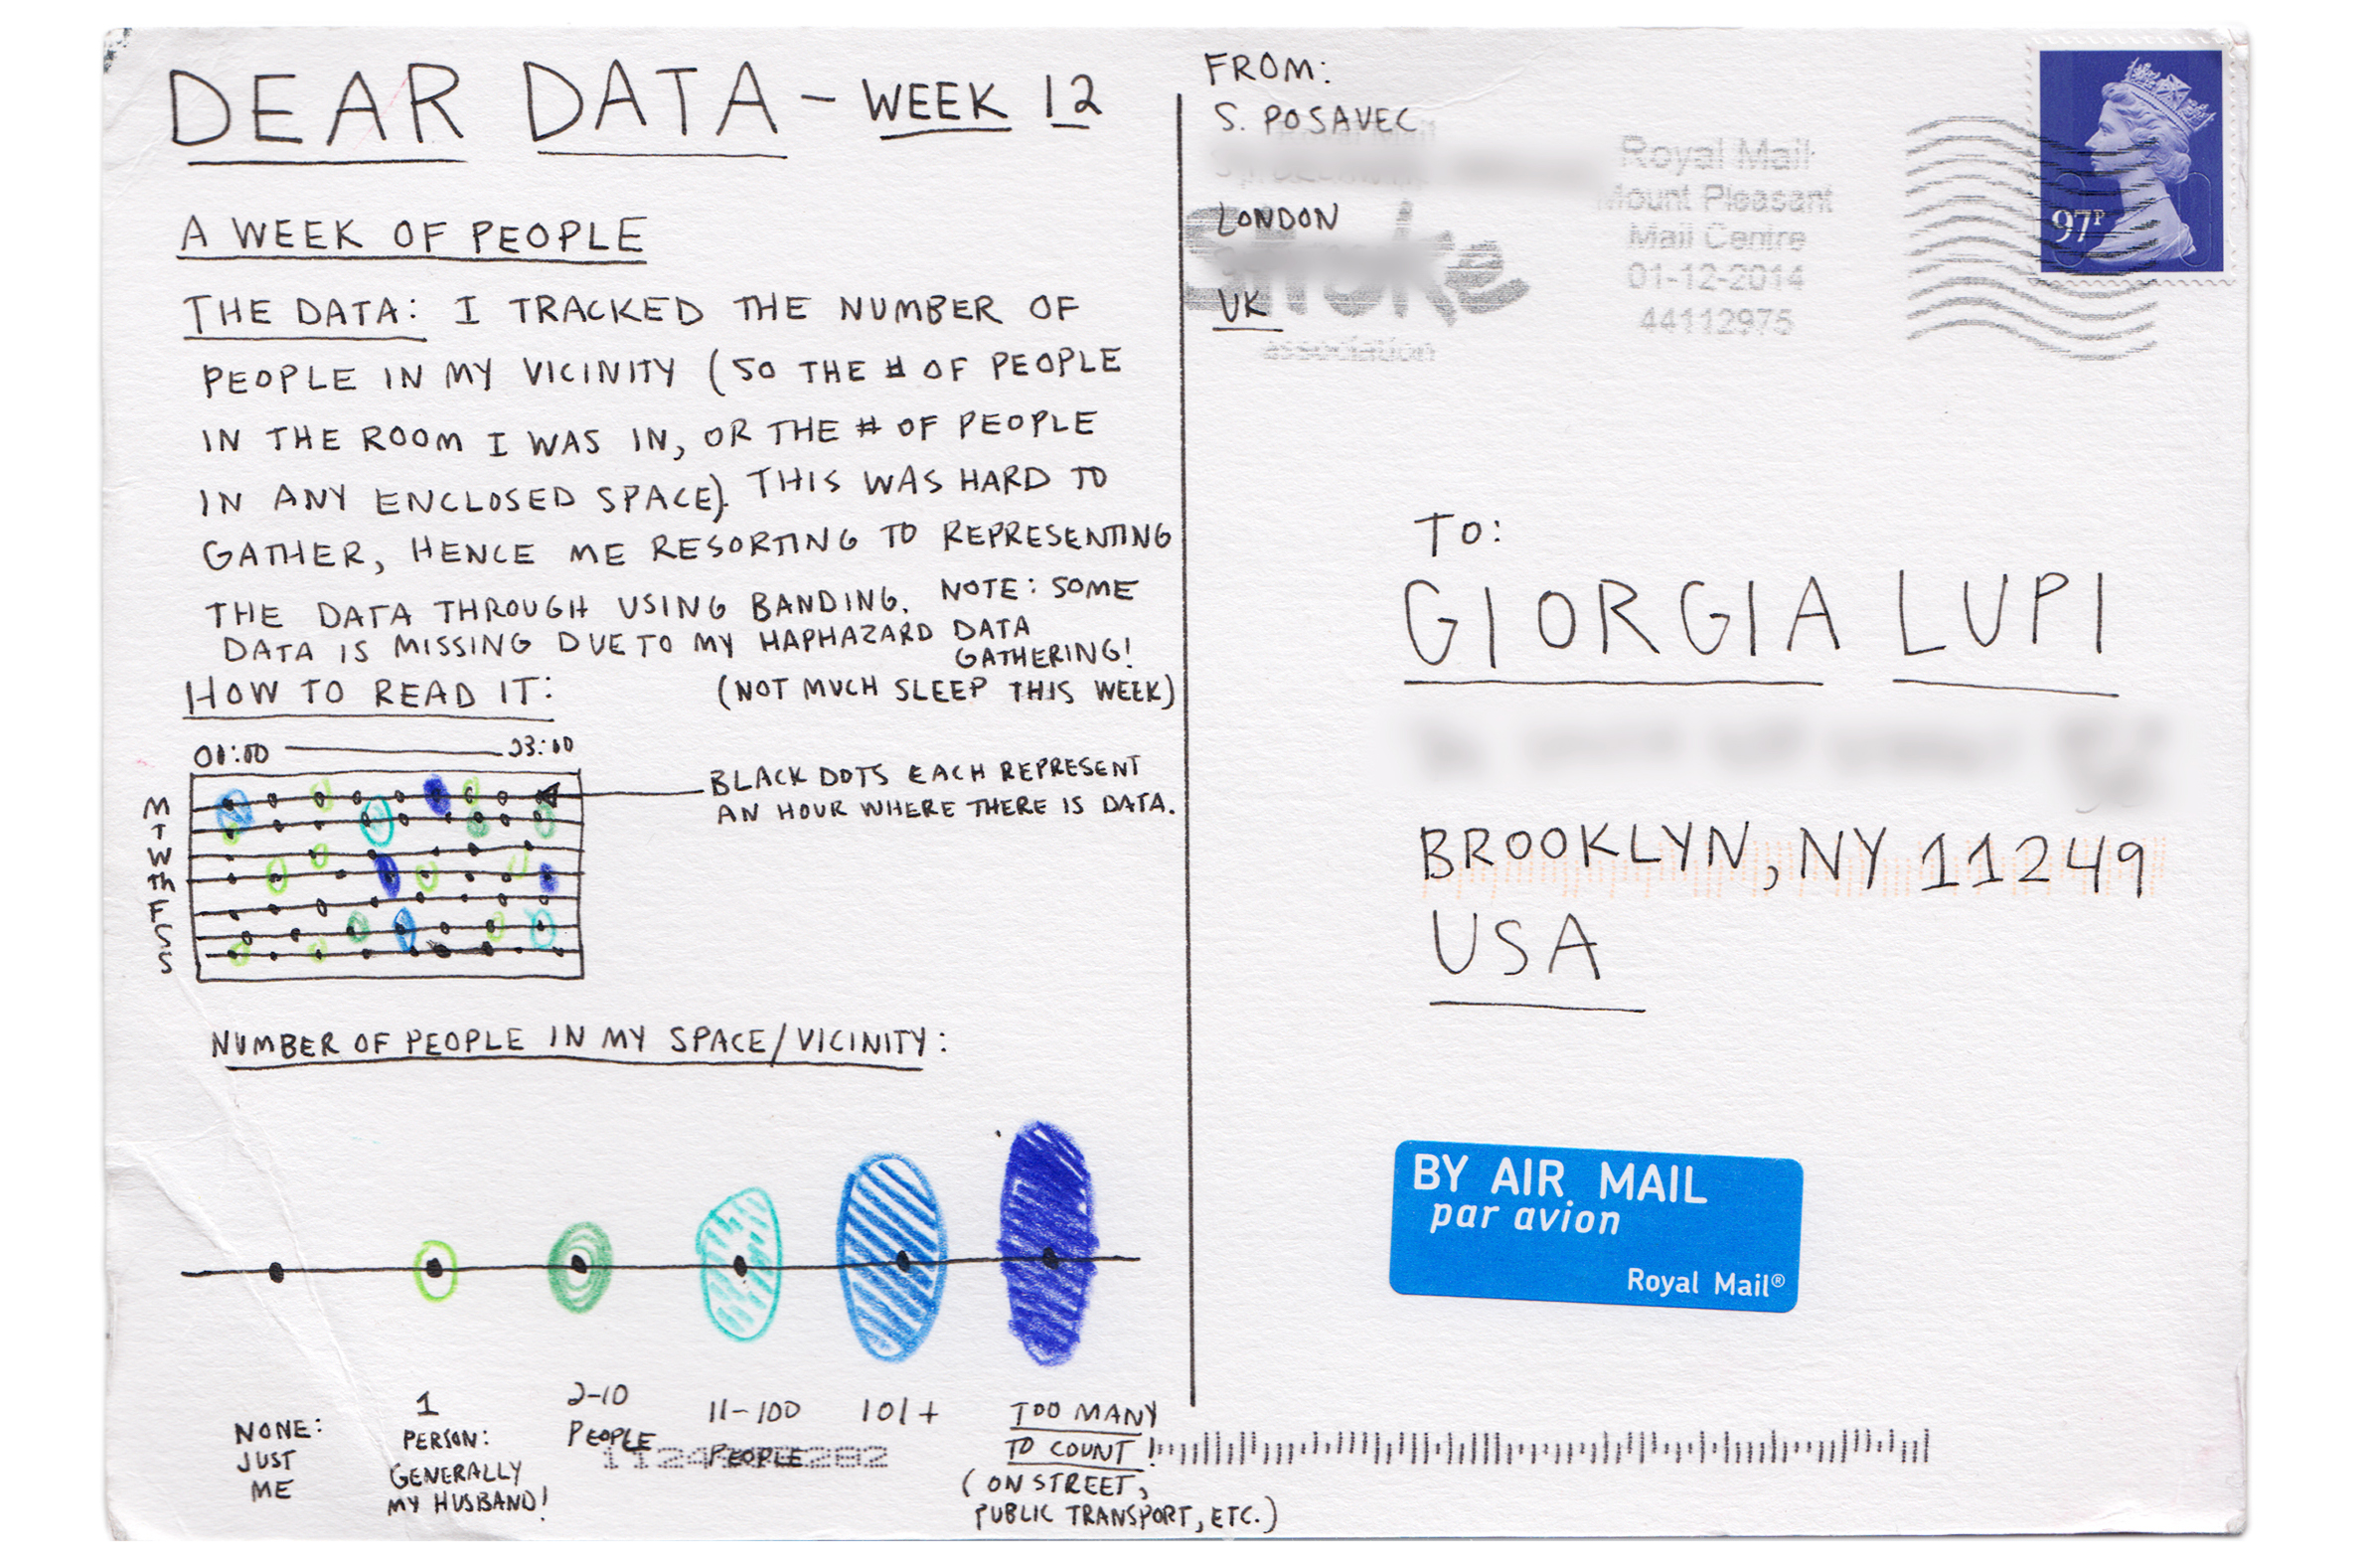 DEAR DATA - WEEK 12
A WEEK OF PEOPLE
THE DATA: I TRACKED THE NUMBER OF
PEOPLE IN MY VICINITY (SO THE # OF PEOPLE
IN THE ROOM I WAS IN, OR THE # OF PEOPLE
IN ANY ENCLOSED SPACE). THIS WAS HARD TO
GATHER, HENCE ME RESORTING TO REPRESENTING
THE DATA THROUGH USING BANDING. NOTE: SOME
DATA IS MISSING DUE TO MY HAPHAZARD DATA
GATHERING!
(NOT MUCH SLEEP THIS WEEK)
HOW TO READ IT:
01:00 23:00
M
T
W
Th
F
S
S
BLACK DOTS EACH REPRESENT
AN HOUR WHERE THERE IS DATA.
NUMBER OF PEOPLE IN MY SPACE/VICINITY:
NONE:
JUST
ME
1
PERSON:
GENERALLY
MY HUSBAND!
2-10
PEOPLE
11-100
PEOPLE
101+
TOO MANY
TO COUNT!
(ON STREET,
PUBLIC TRANSPORT, ETC.)
FROM:
S. POSAVEC
LONDON
UK
Stroke
association
Royal Mail
Mount Pleasant
Mail Centre
01-12-2014
44112975
97P
TO:
GIORGIA LUPI
BROOKLYN, NY 11249
USA
BY AIR MAIL
par avion
Royal Mail®